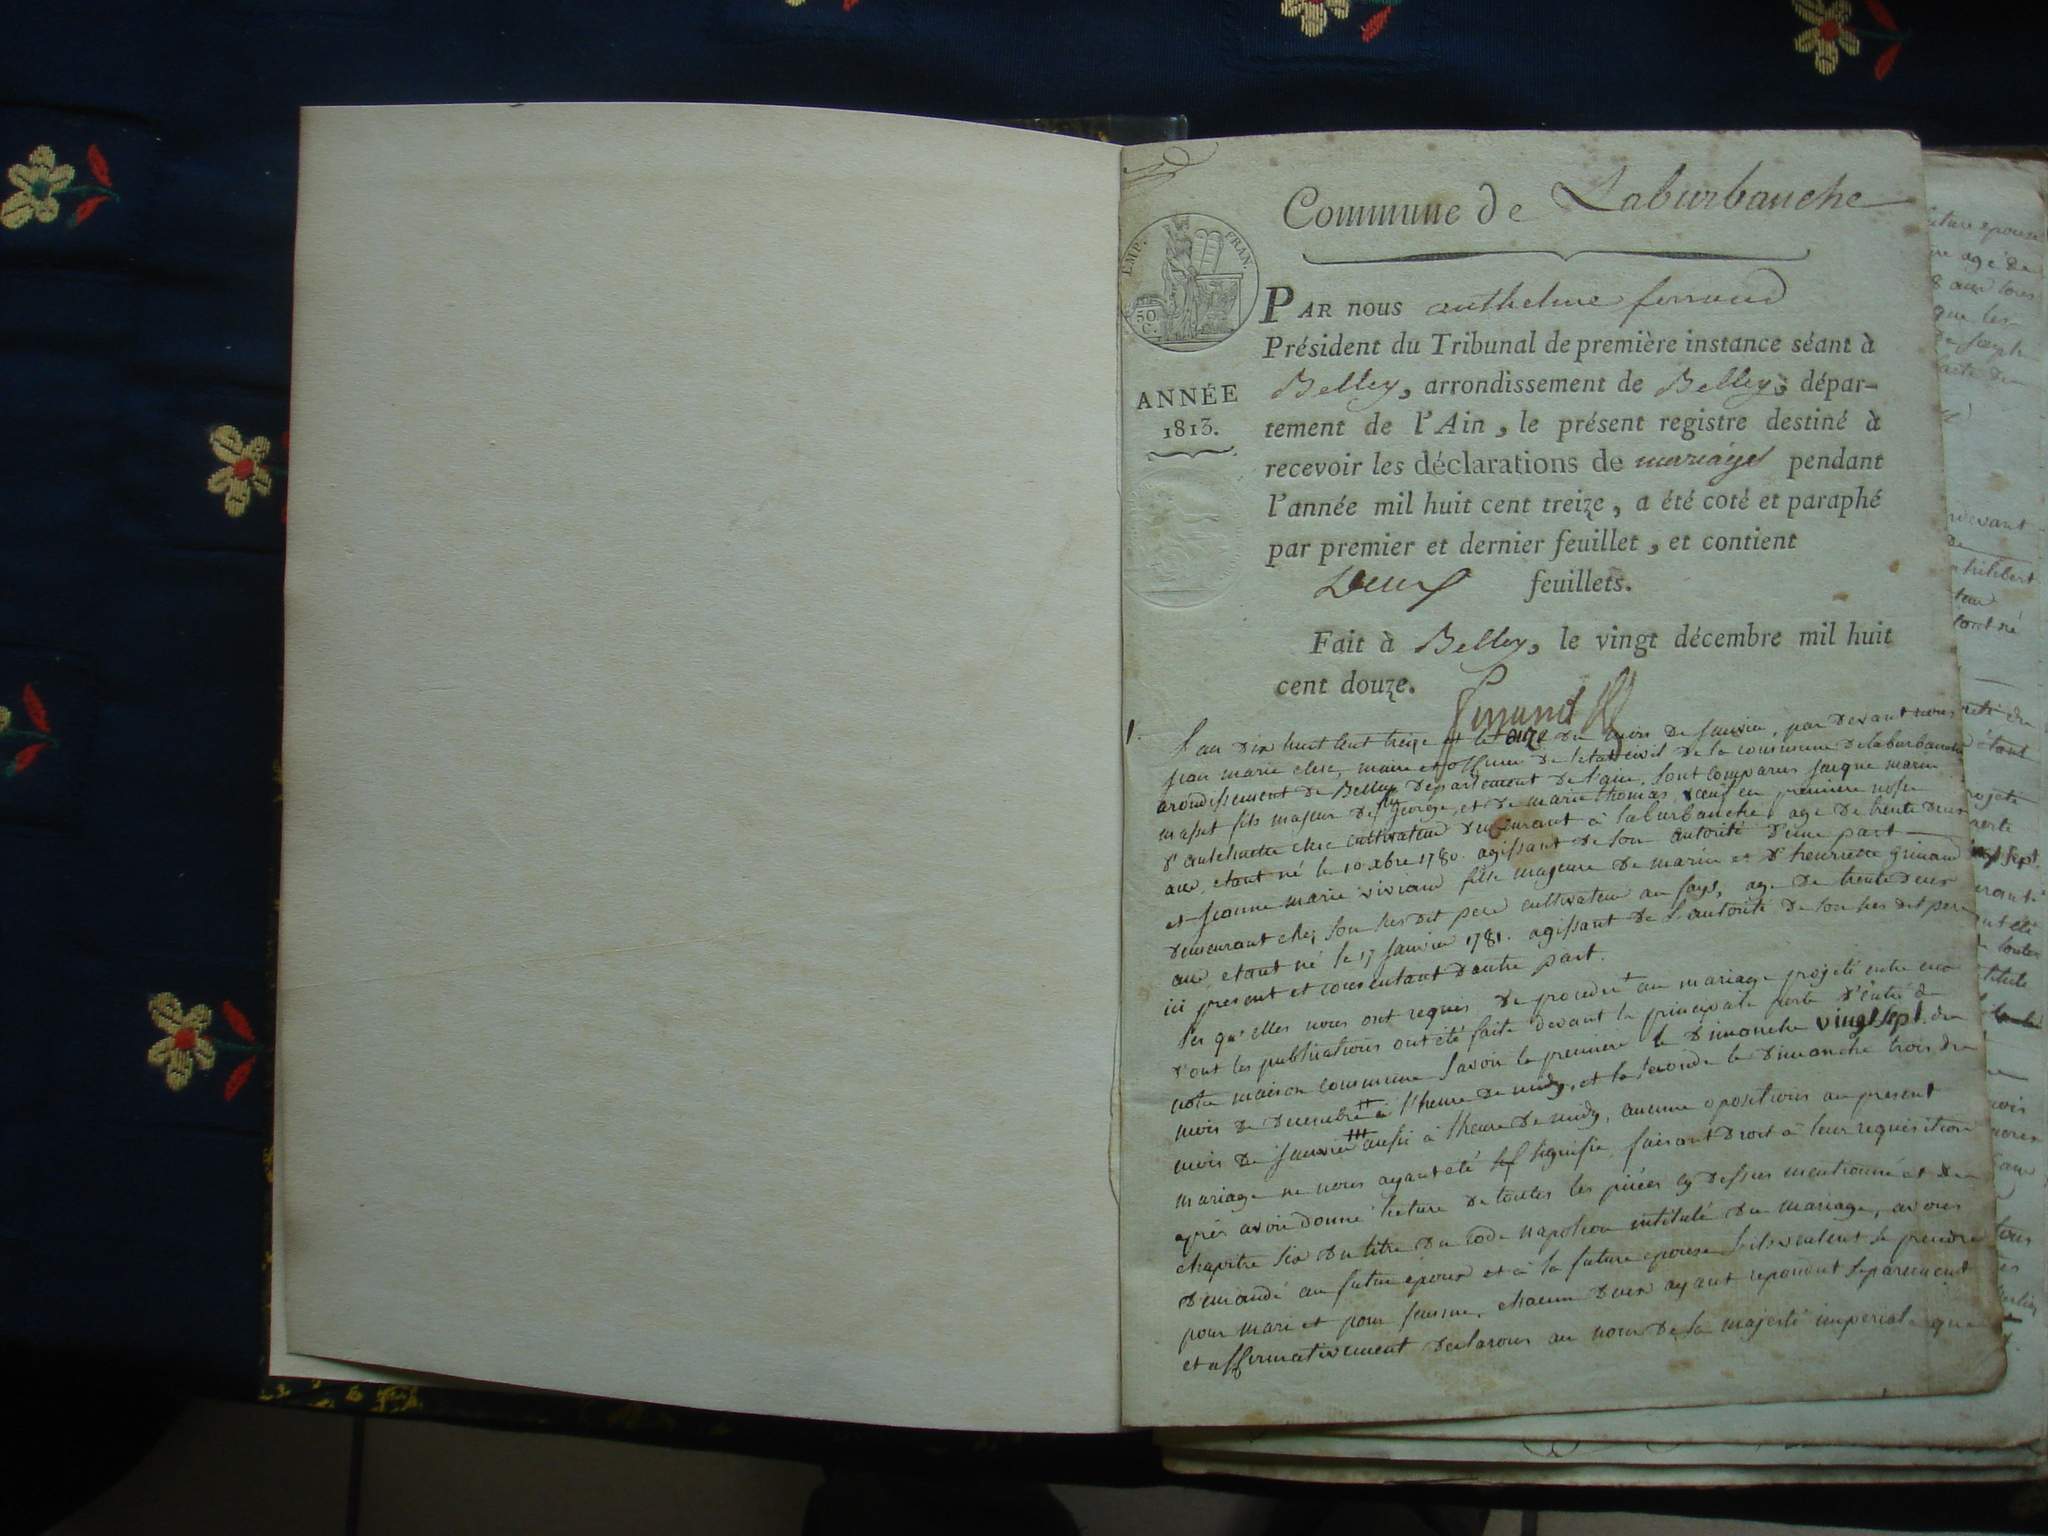 Commune de Laburbanche
EMP. FRAN.
50
C.
PAR nous anthelme ferrand
Président du Tribunal de première instance séant à
Belley, arrondissement de Belley, dépar-
tement de l'Ain, le présent registre destiné à
recevoir les déclarations de mariages pendant
l'année mil huit cent treize, a été coté et paraphé
par premier et dernier feuillet, et contient
Deux feuillets.
ANNÉE
1813.
Fait à Belley, le vingt décembre mil huit
cent douze.
Ferrand
1. L'an dix huit cent treize et le onze du mois de janvier, par devant nous
jean marie clerc, maire et officier de l'etat civil de la commune de laburbanche
arondissement de Belley departement de l'ain, sont comparus jacque marin
massit fils majeur de george, et de marie thomas, veuf en premiere nosse
d' cultivateur demeurant à laburbanche, age de trente deux
ans, etant né le 10 xbre 1780. agissant de son autorité d'une part
et jeanne marie viviand fille majeure de marin et d'henriette
demeurant chez son susdit pere cultivateur au pays, age de trente deux
ans etant né le 17 janvier 1781. agissant de l'autorité de son susdit pere
ici present et consentant d'autre part.
Les qu'elles nous ont requis de proceder au mariage projeté entre eux
d'ont les publications ont été faite devant la principale porte d'entré de
notre maison commune savoir la premiere le dimanche vingt sept du
mois de decembre à l'heure de midy, et la seconde le dimanche trois du
mois de janvier aussi à l'heure de midy, aucune opositions au present
mariage ne nous ayant eté signifie, faisant droit à leur requisition
après avoir donné lecture de toutes les pièces cy dessus mentionné et du
chapitre six du titre du code napoleon intitulé du mariage, avons
demandé au futur epoux et à la future epouse s'ils veulent se prendre
pour mari et pour femme, chacun d'eux ayant repondut separement
et affirmativement declarons au nom de sa majesté imperiale que